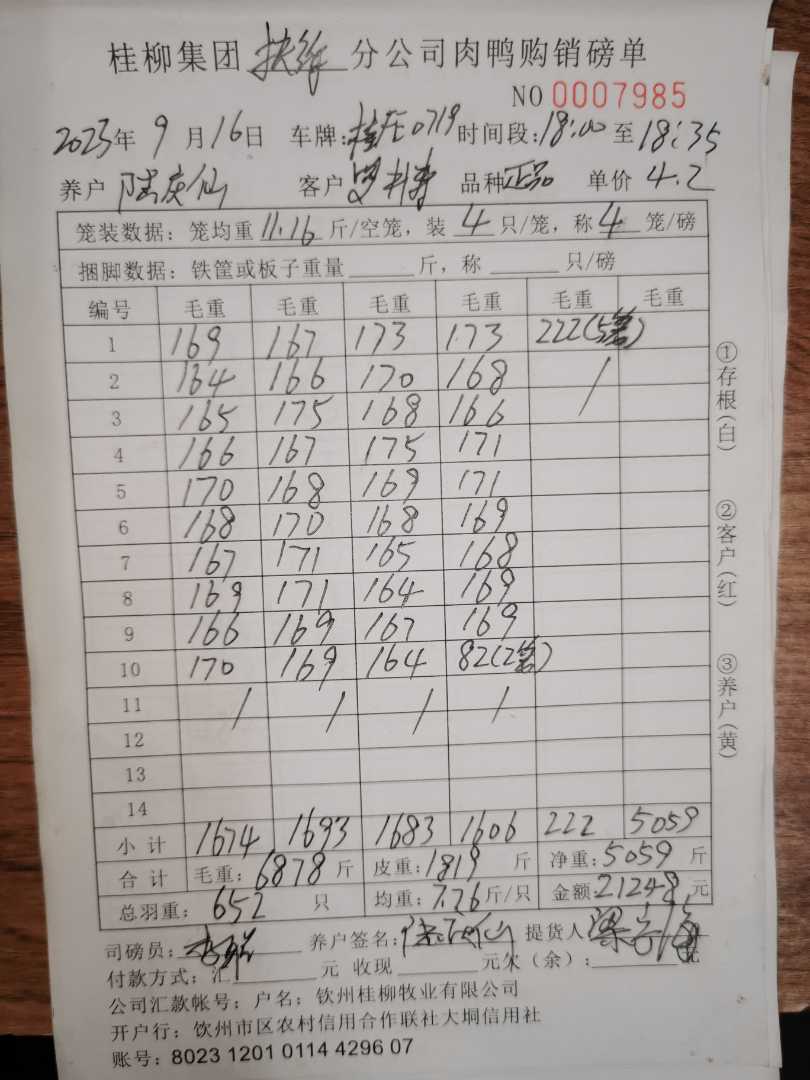 桂柳集团 扶绥 分公司肉鸭购销磅单
NO 0007985
2023年 9 月 16 日 车牌: 0719 时间段: 18:00 至 18:35
养户 陆庆仙 客户 罗 品种 正品 单价 4.2
笼装数据: 笼均重 11.16 斤/空笼, 装 4 只/笼, 称 4 笼/磅
捆脚数据: 铁筐或板子重量 斤, 称 只/磅
编号 毛重 毛重 毛重 毛重 毛重 毛重
1 169 167 173 173 222(5笼)
2 164 166 170 168 /
3 165 175 168 166
4 166 167 175 171
5 170 168 169 171
6 168 170 168 169
7 167 171 165 168
8 169 171 164 169
9 166 169 167 169
10 170 169 164 82(2笼)
11 / / / /
12
13
14
小计 1674 1693 1683 1606 222 5059
合计 毛重: 6878 斤 皮重: 1819 斤 净重: 5059 斤
总羽重: 652 只 均重: 7.76 斤/只 金额: 21248 元
司磅员: 养户签名: 陆庆仙 提货人
付款方式: 汇 元 收现 元欠(余): 元
公司汇款帐号: 户名: 钦州桂柳牧业有限公司
开户行: 钦州市区农村信用合作联社大垌信用社
账号: 8023 1201 0114 4296 07
①存根(白)
②客户(红)
③养户(黄)